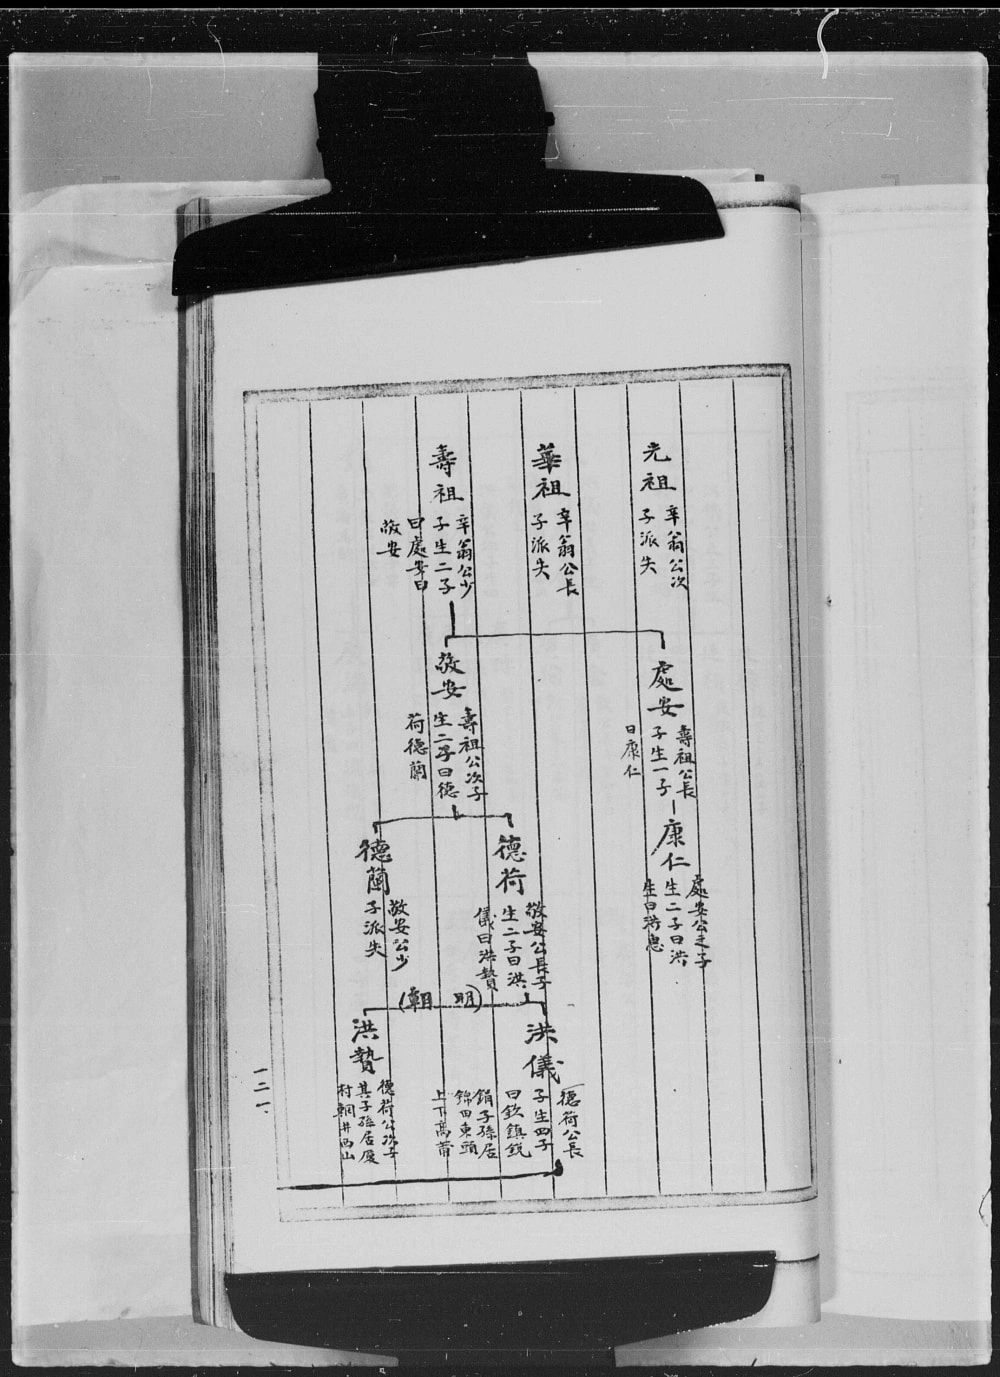 光祖
辛翁公次
子派失
華祖
辛翁公長
子派失
壽祖
辛翁公少
子生二子
曰處安曰
敬安
處安
壽祖公長
子生一子
曰康仁
敬安
壽祖公次子
生二子曰德
荷德蘭
康仁
處安公之子
生二子曰洪
生曰洪惠
德荷
敬安公長子
生二子曰洪
儀曰洪贄
德蘭
敬安公少
子派失
(朝明)
洪儀
德荷公長
子生四子
曰欽鎮銳
鋗子孫居
錦田東頭
上下高莆
洪贄
德荷公次子
其子孫居廈
村輞井西山
一二一